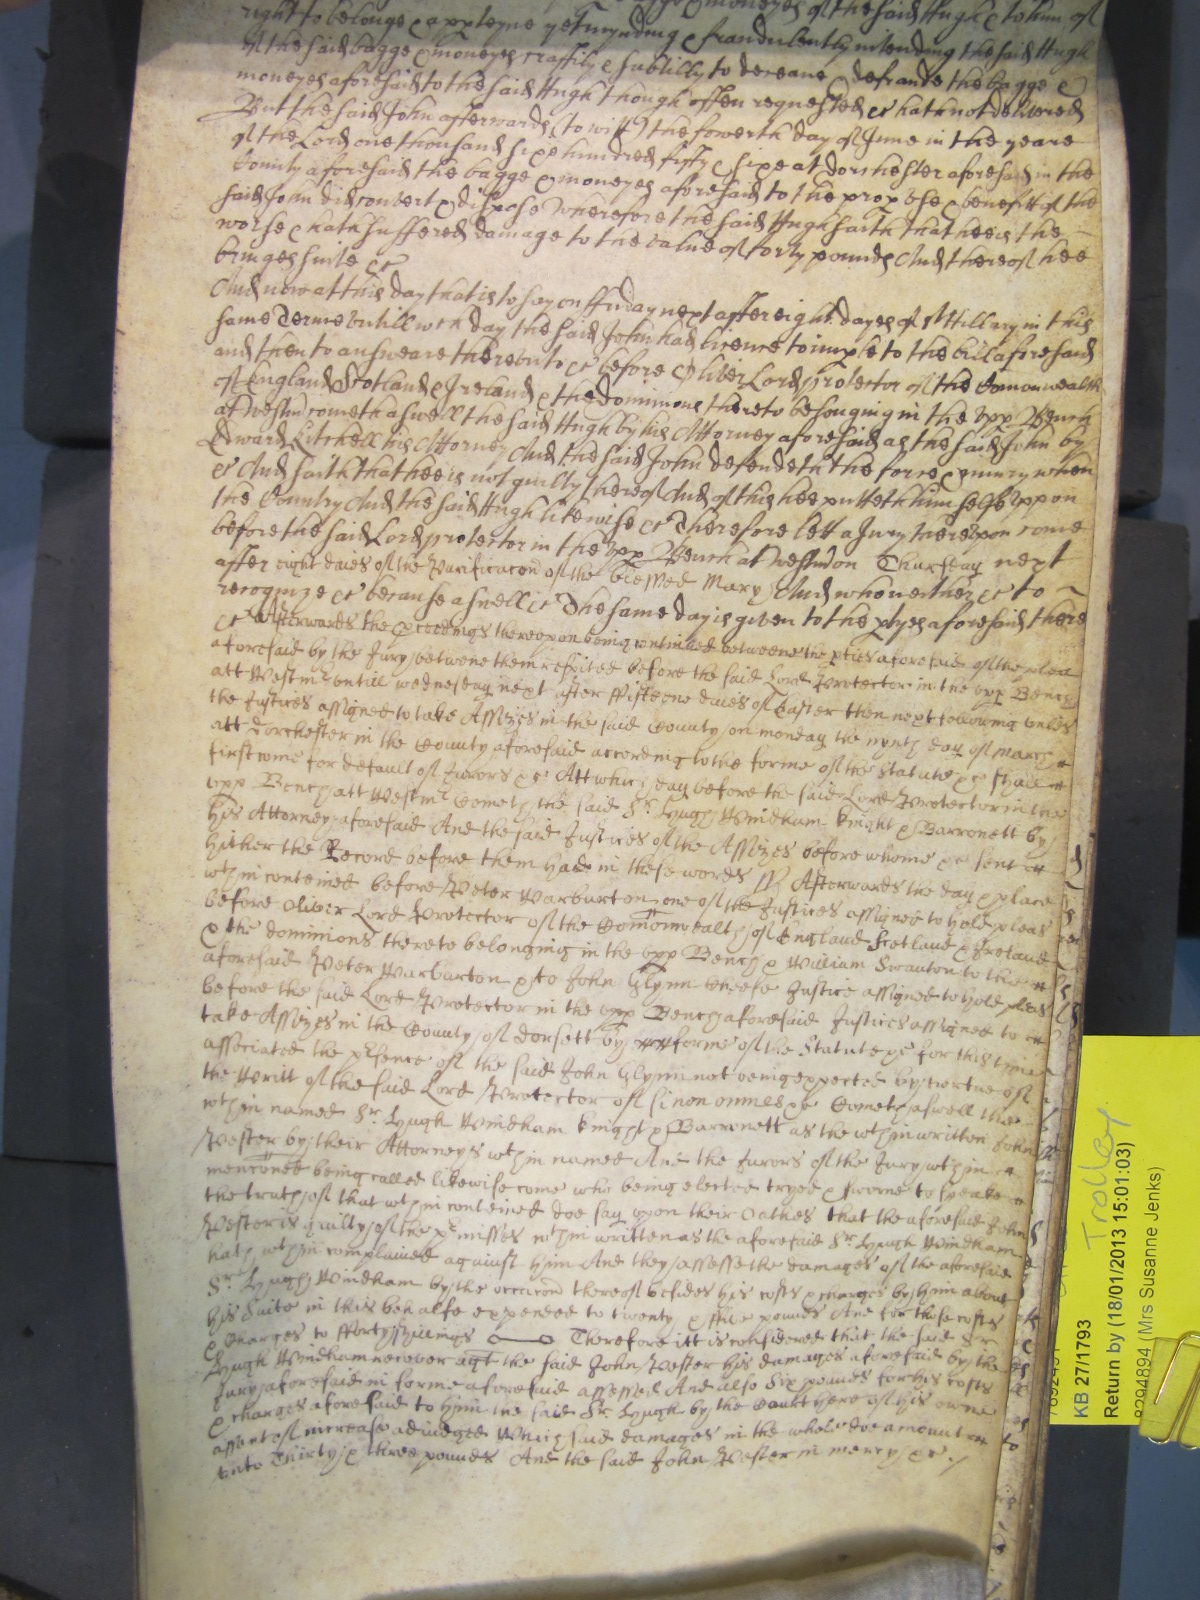 bagge & moneyes of the said Hugh & to him of
right to belonge & apperteyne yet mynding & fraudulently intending the said Hugh
of the said bagge & moneyes craftily & subtilly to deceave & defraude the bagge &
moneyes aforesaid to the said Hugh though often requested &c hath not delivered
But the said John afterwards (to witt) the fowerth day of June in the yeare
of the Lord one thousand sixe hundred fifty & sixe at Dorchester aforesaid in the
County aforesaid the bagge & moneyes aforesaid to the prop use & benefitt of the
said John did convert & dispose Wherefore the said Hugh saith that hee is the
worse & hath suffered damage to the value of forty pounds And thereof hee
bringes suite &c
And now at this day that is to say on ffriday next after eight dayes of St Hillary in this
same Terme untill wch day the said John had licence to imple to the bill aforesaid
and then to answeare thereunto &c before Oliver Lord protector of the Comonwealth
of England Scotland & Ireland & the dominions thereto belonging in the upp Bench
at Westm cometh aswell the said Hugh by his Attorney aforesaid as the said John by
Edward Kitchell his Attorney And the said John defendeth the force & iniury when
&c And saith that hee is not guilty thereof And of this hee putteth himselfe uppon
the Country And the said Hugh likewise &c Therefore lett a Jury thereupon come
before the said Lord protector in the upp Bench at Westm on Thursday next
after eight daies of the Purificacon of the blessed Mary And who neither &c to
recognize &c because aswell &c The same day is given to the ptyes aforesaid there
&c Afterwards the proceedings thereopon being continued betweene the pties aforesaid of the plea
aforesaid by the Jury betwene them respited before the said Lord Protector in the upp Bench
att Westmr untill wednesday next after ffifteene daies of Easter then next following unles
the Justices assigned to take Assizes in the said County on monday the nynth day of March
att Dorchester in the County aforesaid according to the forme of the Statute &c shall
first come for default of Jurors &c Att which day before the said Lord Protector in the
upp Bench att Westmr Cometh the said Sr Hugh Windham knight & Barronett by
his Attorney aforesaid And the said Justices of the Assizes before whome &c sent
hither the Record before them had in these words ss Afterwards the day & place
wthin conteined before Peter Warburton one of the Justices assigned to hold pleas
before Oliver Lord Protector of the Comonwealth of England Scotland & Ireland
& the dominions thereto belonging in the upp Bench & William Swanton to the
aforesaid Peter Warburton & to John Glynn cheefe Justice assigned to hold pleas
before the said Lord Protector in the upp Bench aforesaid Justices assigned to
take Assizes in the County of Dorsett by forme of the Statute &c for this tyme
associated the psence of the said John Glynn not being expected by vertue of
the Writt of the said Lord Protector of si non omnes &c Cometh aswell the
wthin named Sr Hugh Windham knight & Barronett as the wthin written John
Pester by their Attorneys wthin named And the Jurors of the Jury wthin
mencioned being called likewise come who being elected tryed & sworne to speake
the truth of that wthin conteined doe say upon their Oathes that the aforesaid John
Pester is guilty of the pmisses wthin written as the aforesaid Sr Hugh Windham
hath wthin complained against him And they assesse the damages of the aforesaid
Sr Hugh Windham by the occacon thereof besides his costs & charges by him about
his Suite in this behalfe expended to twenty & ffive pounds And for those costs
& charges to fforty shillings Therefore itt is considered that the said Sr
Hugh Windham recover agt the said John Pester his damages aforesaid by the
Jury aforesaid in forme aforesaid assessed And also Six pounds for his costs
& charges aforesaid to him the said Sr Hugh by the Court here of his owne
assent of increase adiudged Which said damages in the whole doe amount
unto Thirty & three pounds And the said John Pester in mercy &c
Trolley
KB 27/1793
Return by (18/01/2013 15:01:03)
8294894 (Mrs Susanne Jenks)